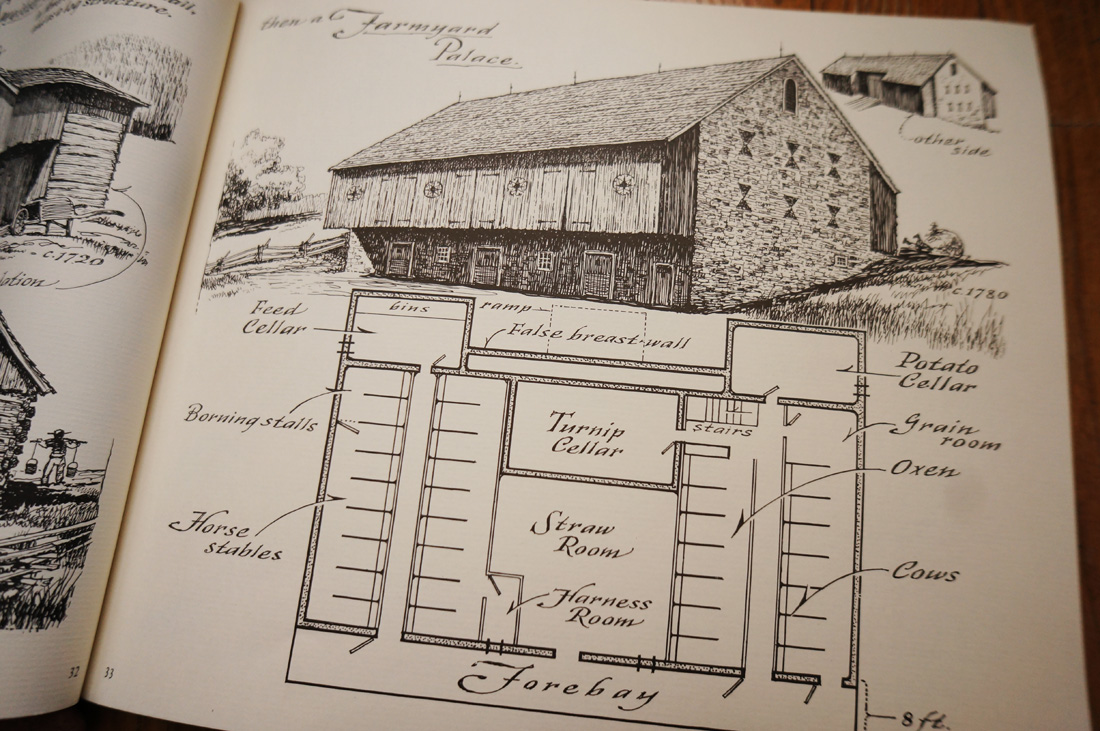 structure.
c.1720
32
then a Farmyard
Palace.
other
side
c.1780
Feed
Cellar
bins
ramp
False breast-wall
Potato
Cellar
Borning stalls
Turnip
Cellar
stairs
Grain
room
Oxen
Horse
stables
Straw
Room
Harness
Room
Cows
Forebay
8 ft.
33